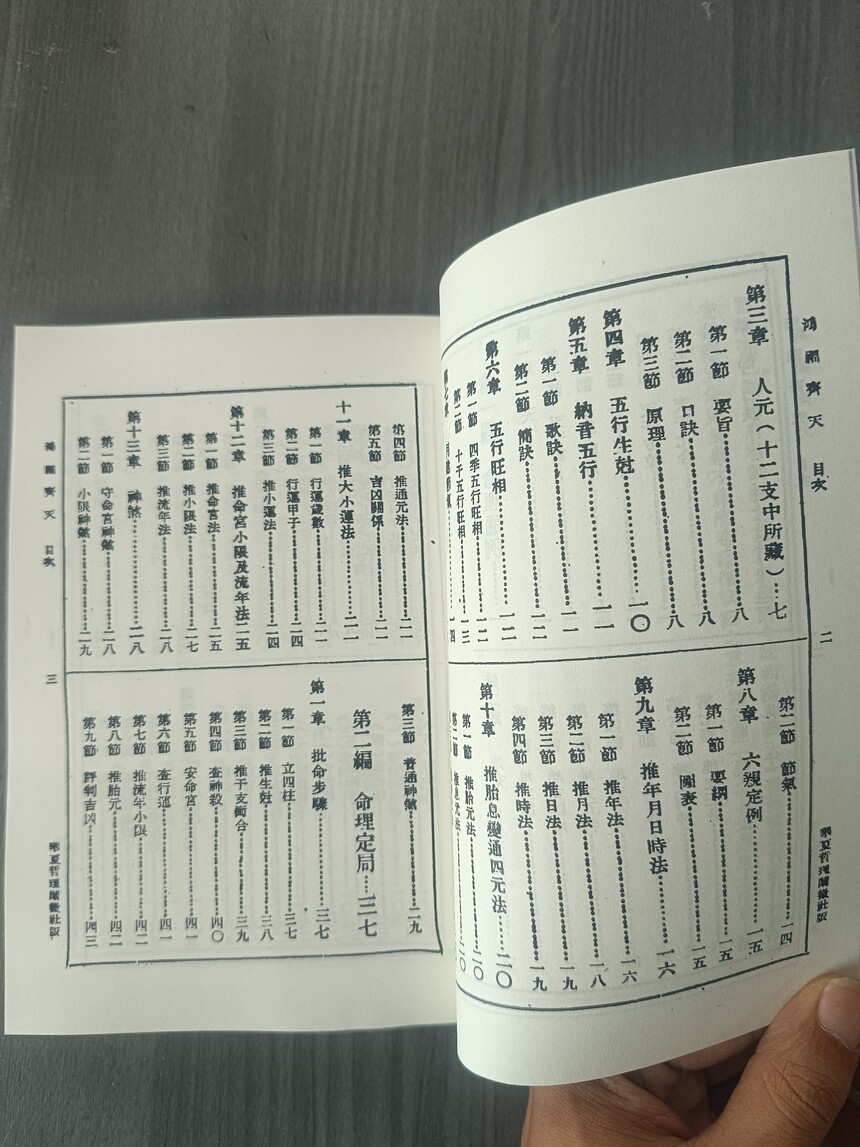 鴻福齊天　目次
二
華夏哲理闡微社版
第三章　人元（十二支中所藏）…七
第一節　要旨…八
第二節　口訣…八
第三節　原理…八
第四章　五行生尅…一〇
第五章　納音五行…一一
第一節　歌訣…一一
第二節　簡訣…一二
第六章　五行旺相…一二
第一節　四季五行旺相…一二
第二節　十干五行旺相…一三
第二節　節氣…一四
第八章　六親定例…一五
第一節　要綱…一五
第二節　圖表…一五
第九章　推年月日時法…一六
第一節　推年法…一六
第二節　推月法…一八
第三節　推日法…一九
第四節　推時法…一九
第十章　推胎息變通四元法…二〇
第一節　推胎元法…二〇
第二節　推息元法…二〇
第四節　推通元法…二一
第五節　吉凶關係…二一
十一章　推大小運法…二一
第一節　行運歲數…二一
第二節　行運甲子…二四
第三節　推小運法…二四
第十二章　推命宮小限及流年法…二五
第一節　推命宮法…二五
第二節　推小限法…二七
第三節　推流年法…二八
第十三章　神煞…二八
第一節　守命宮神煞…二八
第二節　小限神煞…二九
第三節　普通神煞…二九
第二編　命理定局…三七
第一章　批命步驟…三七
第一節　立四柱…三七
第二節　推生尅…三八
第三節　推干支衝合…三九
第四節　查神殺…四〇
第五節　安命宮…四一
第六節　查行運…四一
第七節　推流年小限…四二
第八節　推胎元…四二
第九節　評判吉凶…四三
鴻福齊天　目次
三
華夏哲理闡微社版